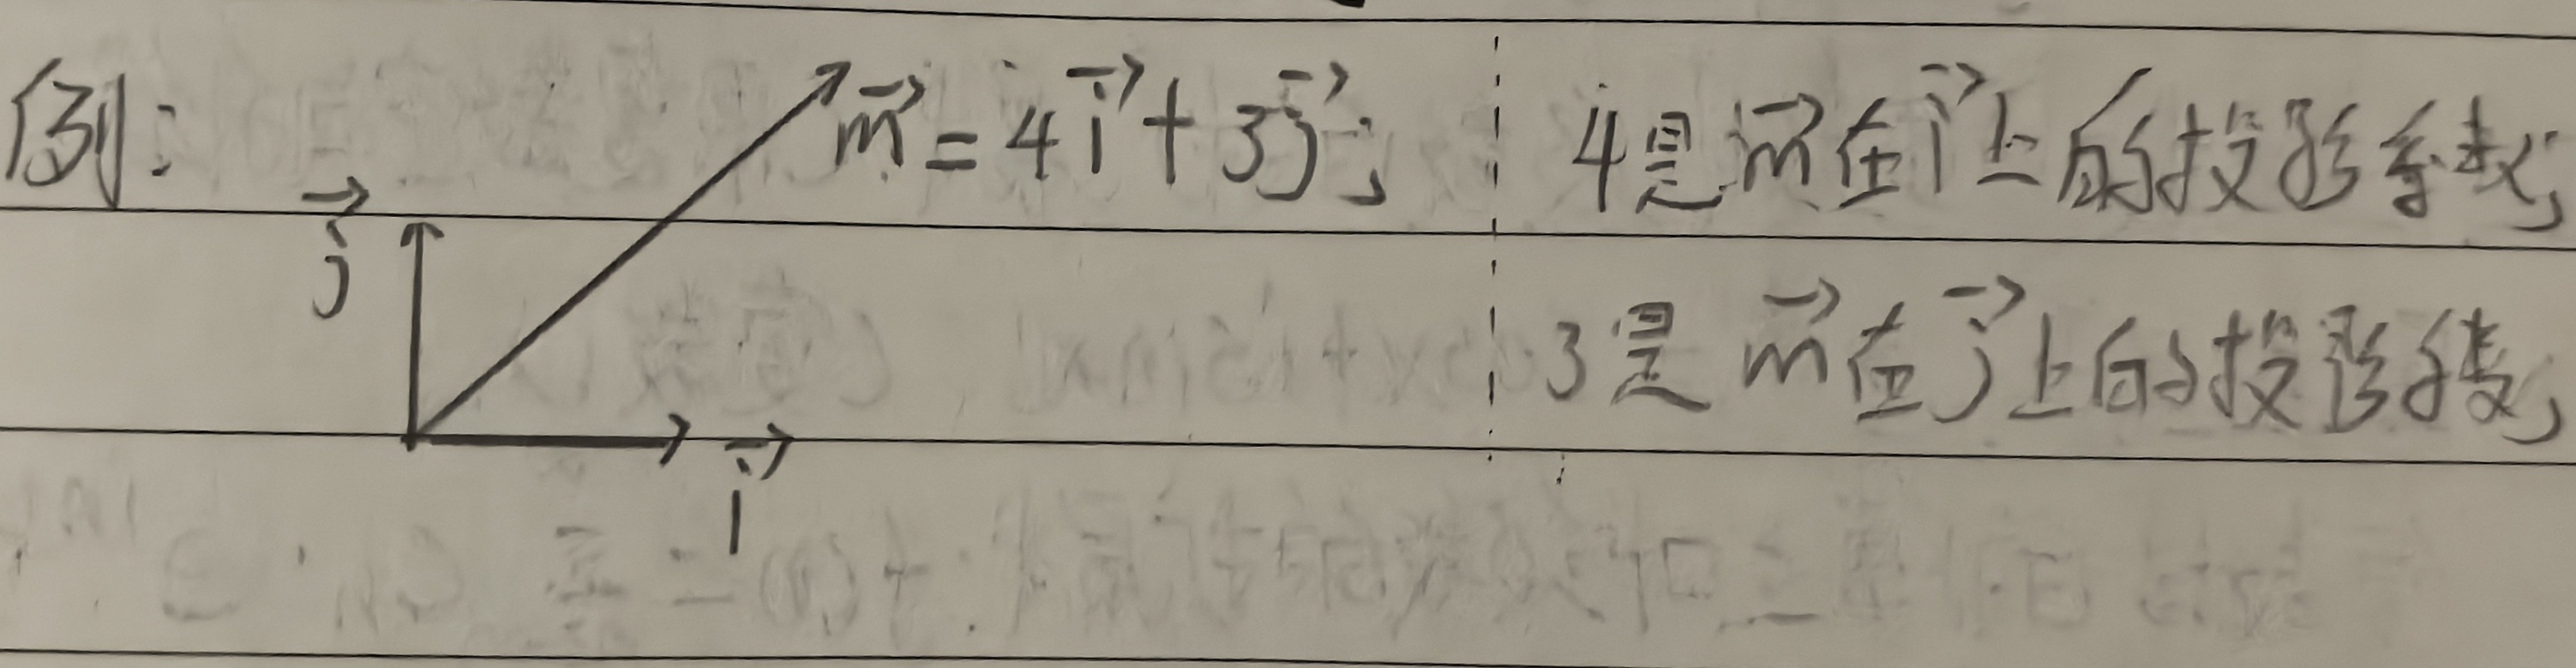 例: m⃗ = 4i⃗ + 3j⃗; 4是m⃗在i⃗上的投影系数;
j⃗
3是m⃗在j⃗上的投影系数;
i⃗